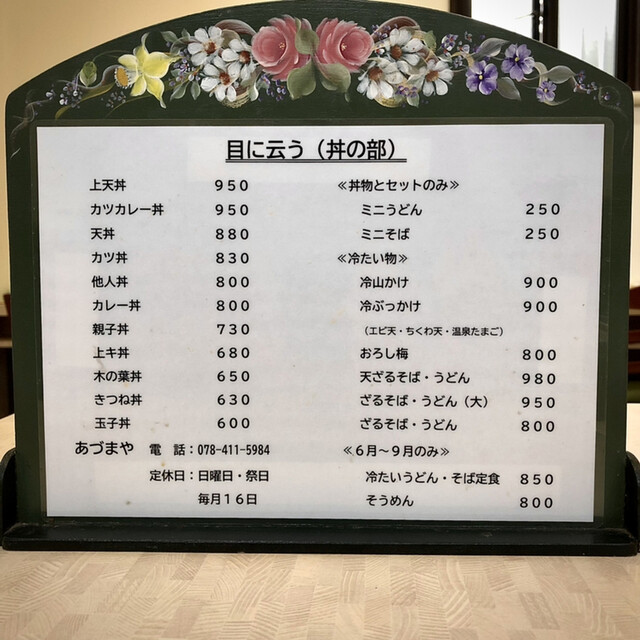 目に云う（丼の部）
上天丼　９５０
カツカレー丼　９５０
天丼　８８０
カツ丼　８３０
他人丼　８００
カレー丼　８００
親子丼　７３０
上キ丼　６８０
木の葉丼　６５０
きつね丼　６３０
玉子丼　６００
あづまや　電　話：078-411-5984
定休日：日曜日・祭日
毎月１６日
≪丼物とセットのみ≫
ミニうどん　２５０
ミニそば　２５０
≪冷たい物≫
冷山かけ　９００
冷ぶっかけ　９００
（エビ天・ちくわ天・温泉たまご）
おろし梅　８００
天ざるそば・うどん　９８０
ざるそば・うどん（大）　９５０
ざるそば・うどん　８００
≪６月～９月のみ≫
冷たいうどん・そば定食　８５０
そうめん　８００